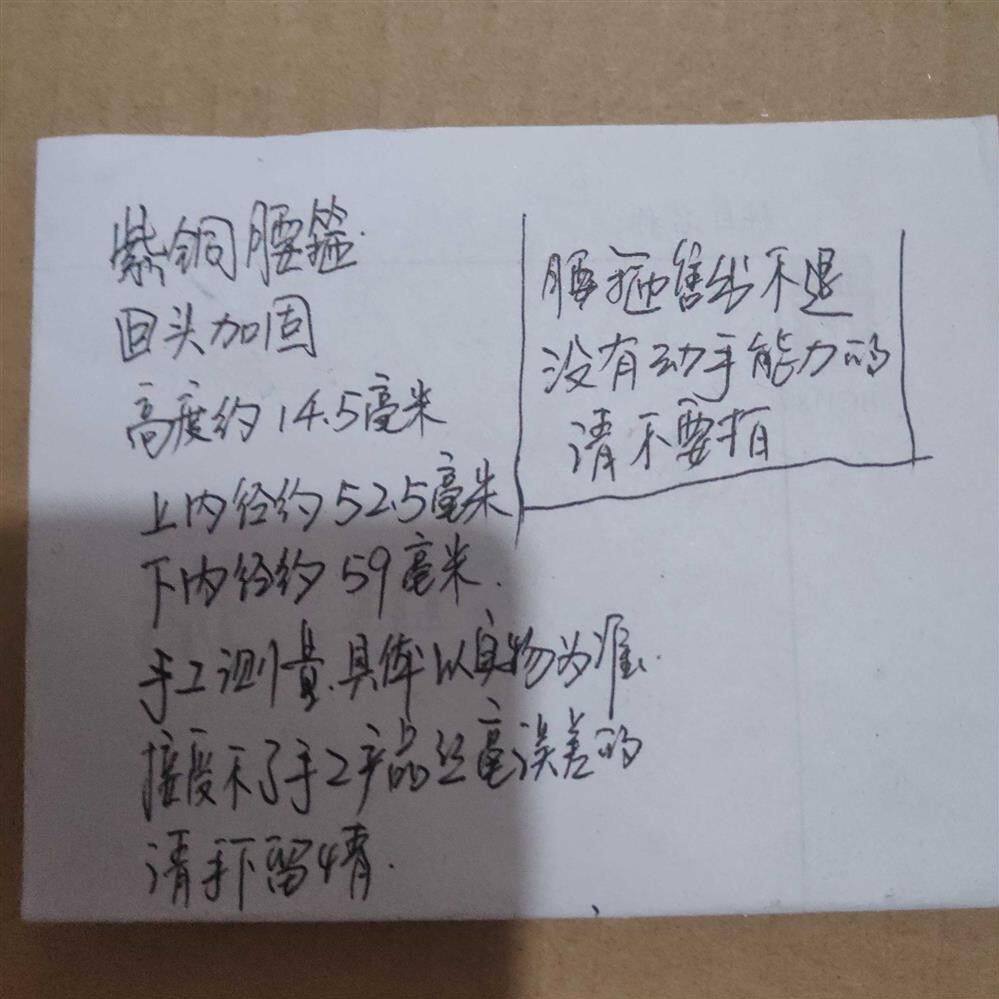 紫铜腰箍.
回头加固
高度约14.5毫米
上内径约52.5毫米
下内径约59毫米.
手工测量.具体以实物为准.
接受不了手工产品丝毫误差的
请手下留情.
腰箍售出不退
没有动手能力的
请不要拍